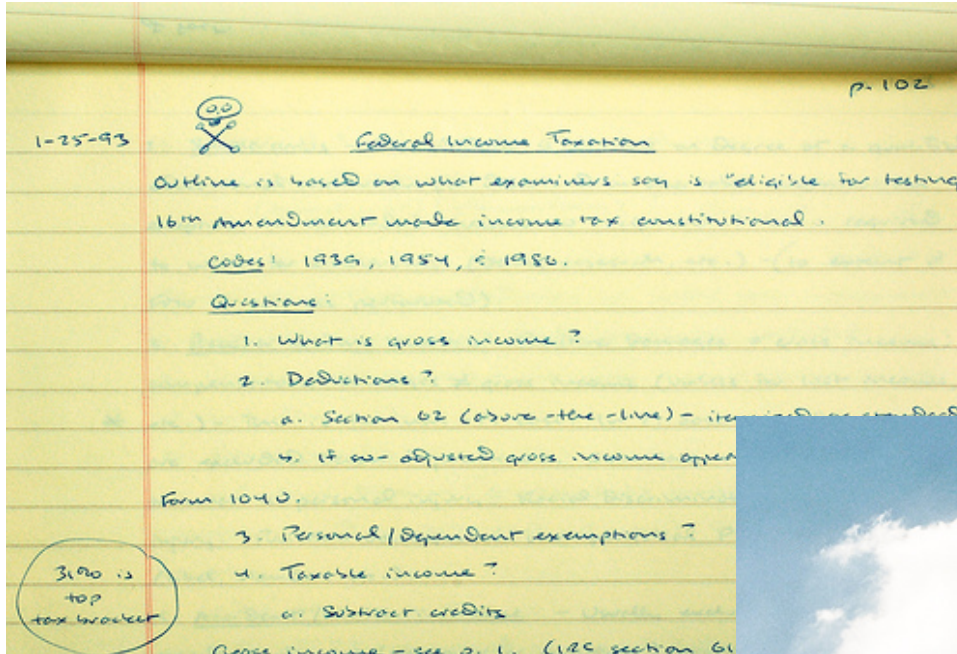 p. 102
1-25-93
Federal Income Taxation
Outline is based on what examiners say is "eligible for testing
16th Amendment made income tax constitutional.
Codes: 1939, 1954, & 1986.
Questions:
1. What is gross income?
2. Deductions?
a. Section 62 (above-the-line) - itemized or standard
b. If so - adjusted gross income
Form 1040.
3. Personal/dependent exemptions?
31% is
top
tax bracket
4. Taxable income?
a. Subtract credits
Gross income - see p. 1. (IRC section 61